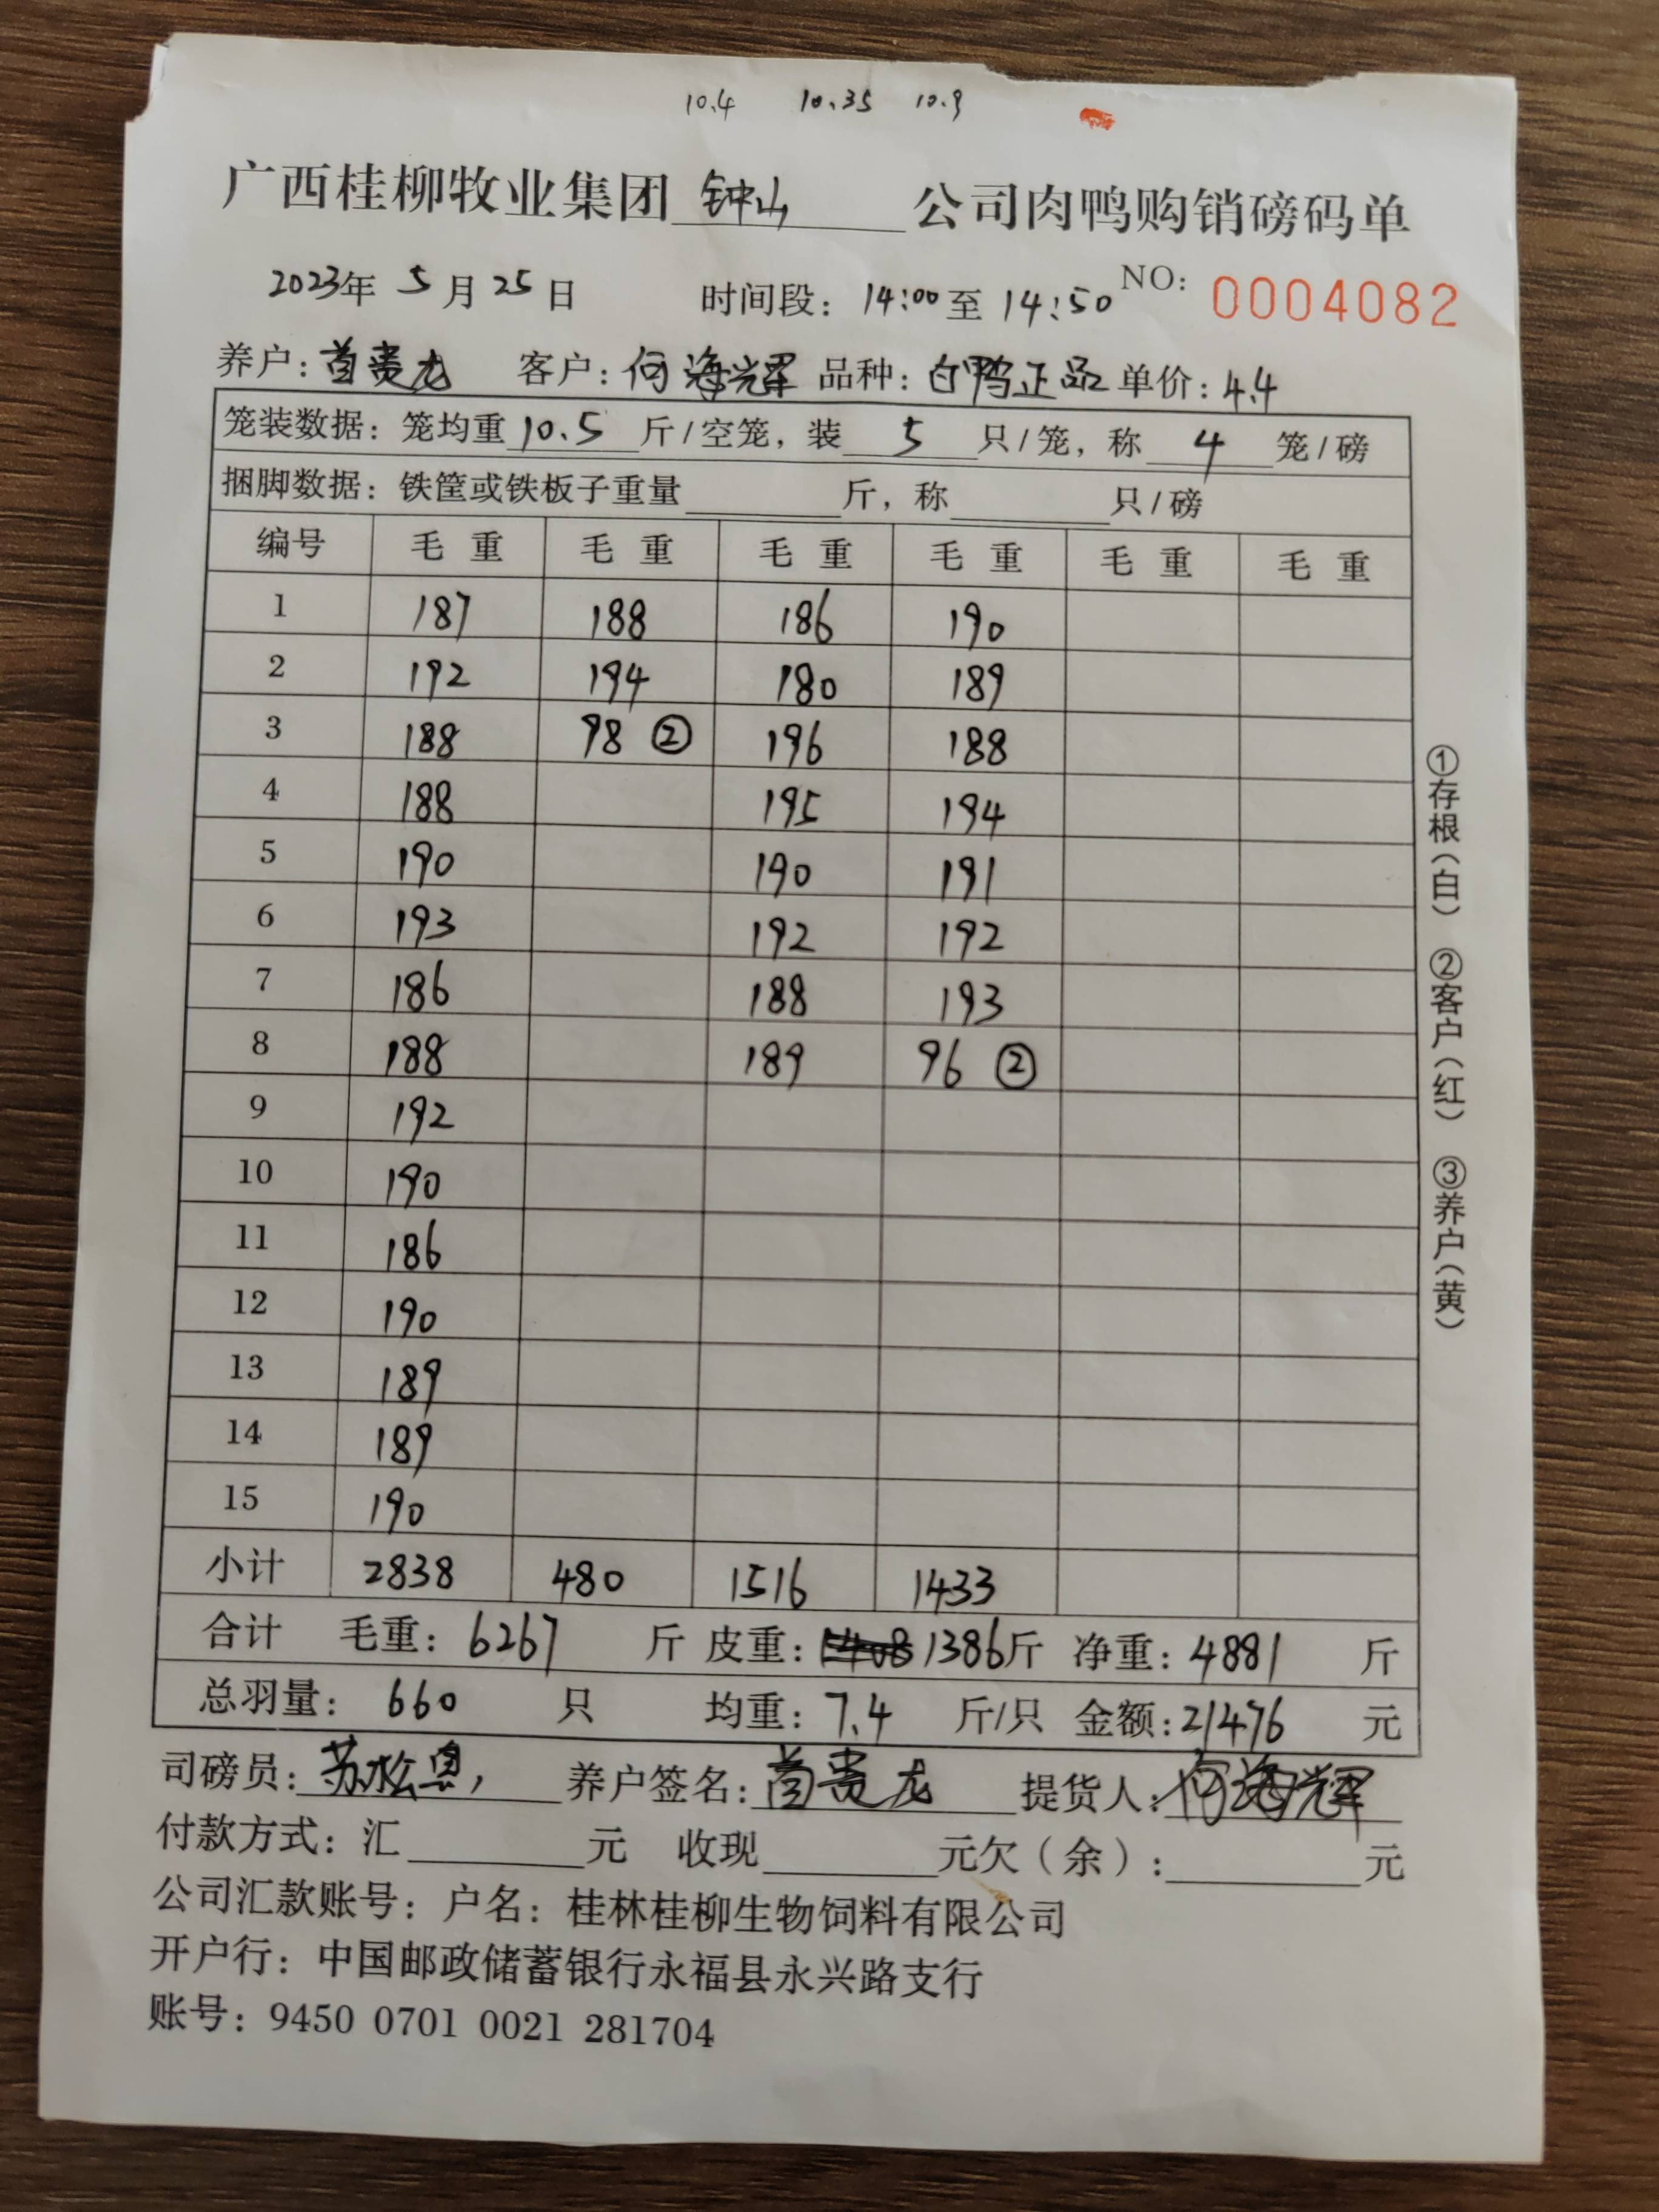 10.4 10.35 10.9
广西桂柳牧业集团 钟山 公司肉鸭购销磅码单
2023年 5 月 25 日 时间段: 14:00 至 14:50 NO: 0004082
养户: 贵龙 客户: 何海辉 品种: 白鸭正品 单价: 4.4
笼装数据: 笼均重 10.5 斤/空笼, 装 5 只/笼, 称 4 笼/磅
捆脚数据: 铁筐或铁板子重量 斤, 称 只/磅
编号 毛重 毛重 毛重 毛重 毛重 毛重
1 187 188 186 190
2 192 194 180 189
3 188 98 ② 196 188
4 188 195 194
5 190 190 191
6 193 192 192
7 186 188 193
8 188 189 96 ②
9 192
10 190
11 186
12 190
13 189
14 189
15 190
小计 2838 480 1516 1433
合计 毛重: 6267 斤 皮重: 1408 1386斤 净重: 4881 斤
总羽量: 660 只 均重: 7.4 斤/只 金额: 21476 元
司磅员: 苏松 养户签名: 贵龙 提货人: 何海辉
付款方式: 汇 元 收现 元欠(余): 元
公司汇款账号: 户名: 桂林桂柳生物饲料有限公司
开户行: 中国邮政储蓄银行永福县永兴路支行
账号: 9450 0701 0021 281704
①存根(白) ②客户(红) ③养户(黄)